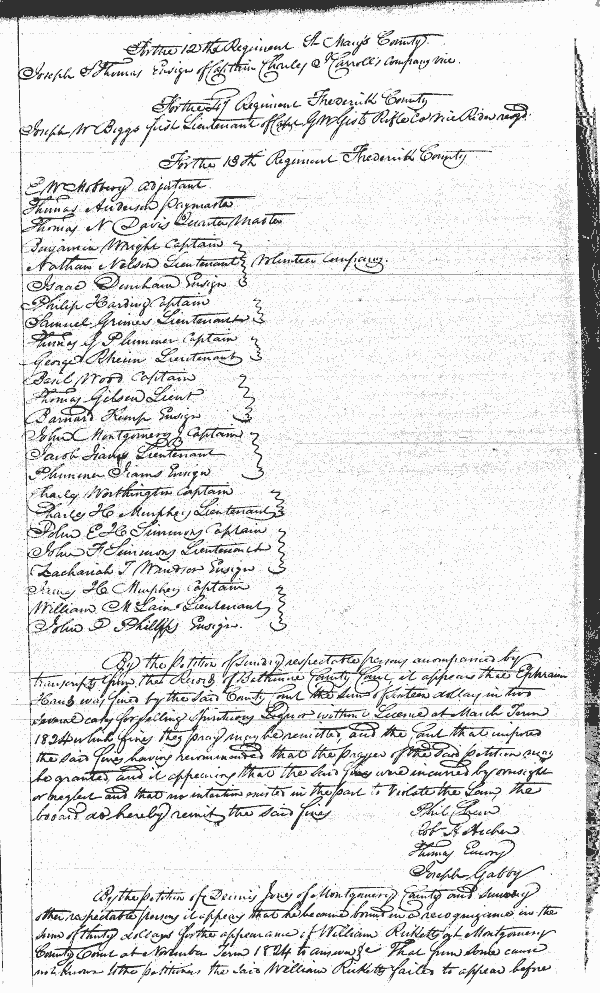 For the 12th Regiment St Mary's County
Joseph S Thomas Ensign of Captain Charles Carroll's Company vice.
For the 47 Regiment Frederick County
Joseph W Biggs first Lieutenant of Capt G W Gist Rifle Co vice Rider resgd.
For the 13th Regiment Frederick County
E W Mobberly adjutant
Thomas Anderson Paymaster
Thomas N Davis Quarter Master
Benjamin Wright Captain
Nathan Nelson Lieutenant Volunteer Company.
Isaac Ensign
Philip Harding Captain
Samuel Grimes Lieutenant
Thomas J Plummer Captain
George Rheim Lieutenant
Basil Wood Captain
Thomas Gibson Lieut
Barnard Kemp Ensign
John Montgomery Captain
Jacob Lieutenant
Plummer Iiams Ensign
Charles Worthington Captain
Charles H Murphey Lieutenant
John E H Simmons Captain
John F Simmons Lieutenant
Zachariah T Windsor Ensign
H Murphey Captain
William M Lain Lieutenant
John D Phillips Ensign.
By the Petition of Sundry respectable persons accompanied by
transcripts from the Record of Baltimore County Court it appears that Ephraim
was fined by the Said County Court the sum of sixteen dollars in two
several cases for selling Spirituous Liquor without License at March Term
1824 which fines they pray may be remitted and the Court that imposed
the said fines having recommended that the prayer of the said petition may
be granted and it appearing that the Said fines were incurred by oversight
or neglect and that no intention existed in the part to Violate the Law, the
board do hereby remit the said fines
Jos A Archer
Thomas Emory
Joseph Gabby
By the petition of Dennis Jones of Montgomery County and sundry
other respectable persons it appears that he became bound in a recognizance in the
sum of thirty dollars for the appearance of William Ricketts at Montgomery
County Court at November Term 1824 to answer &c That from some cause
not known to the petitioners the said William Ricketts failed to appear before